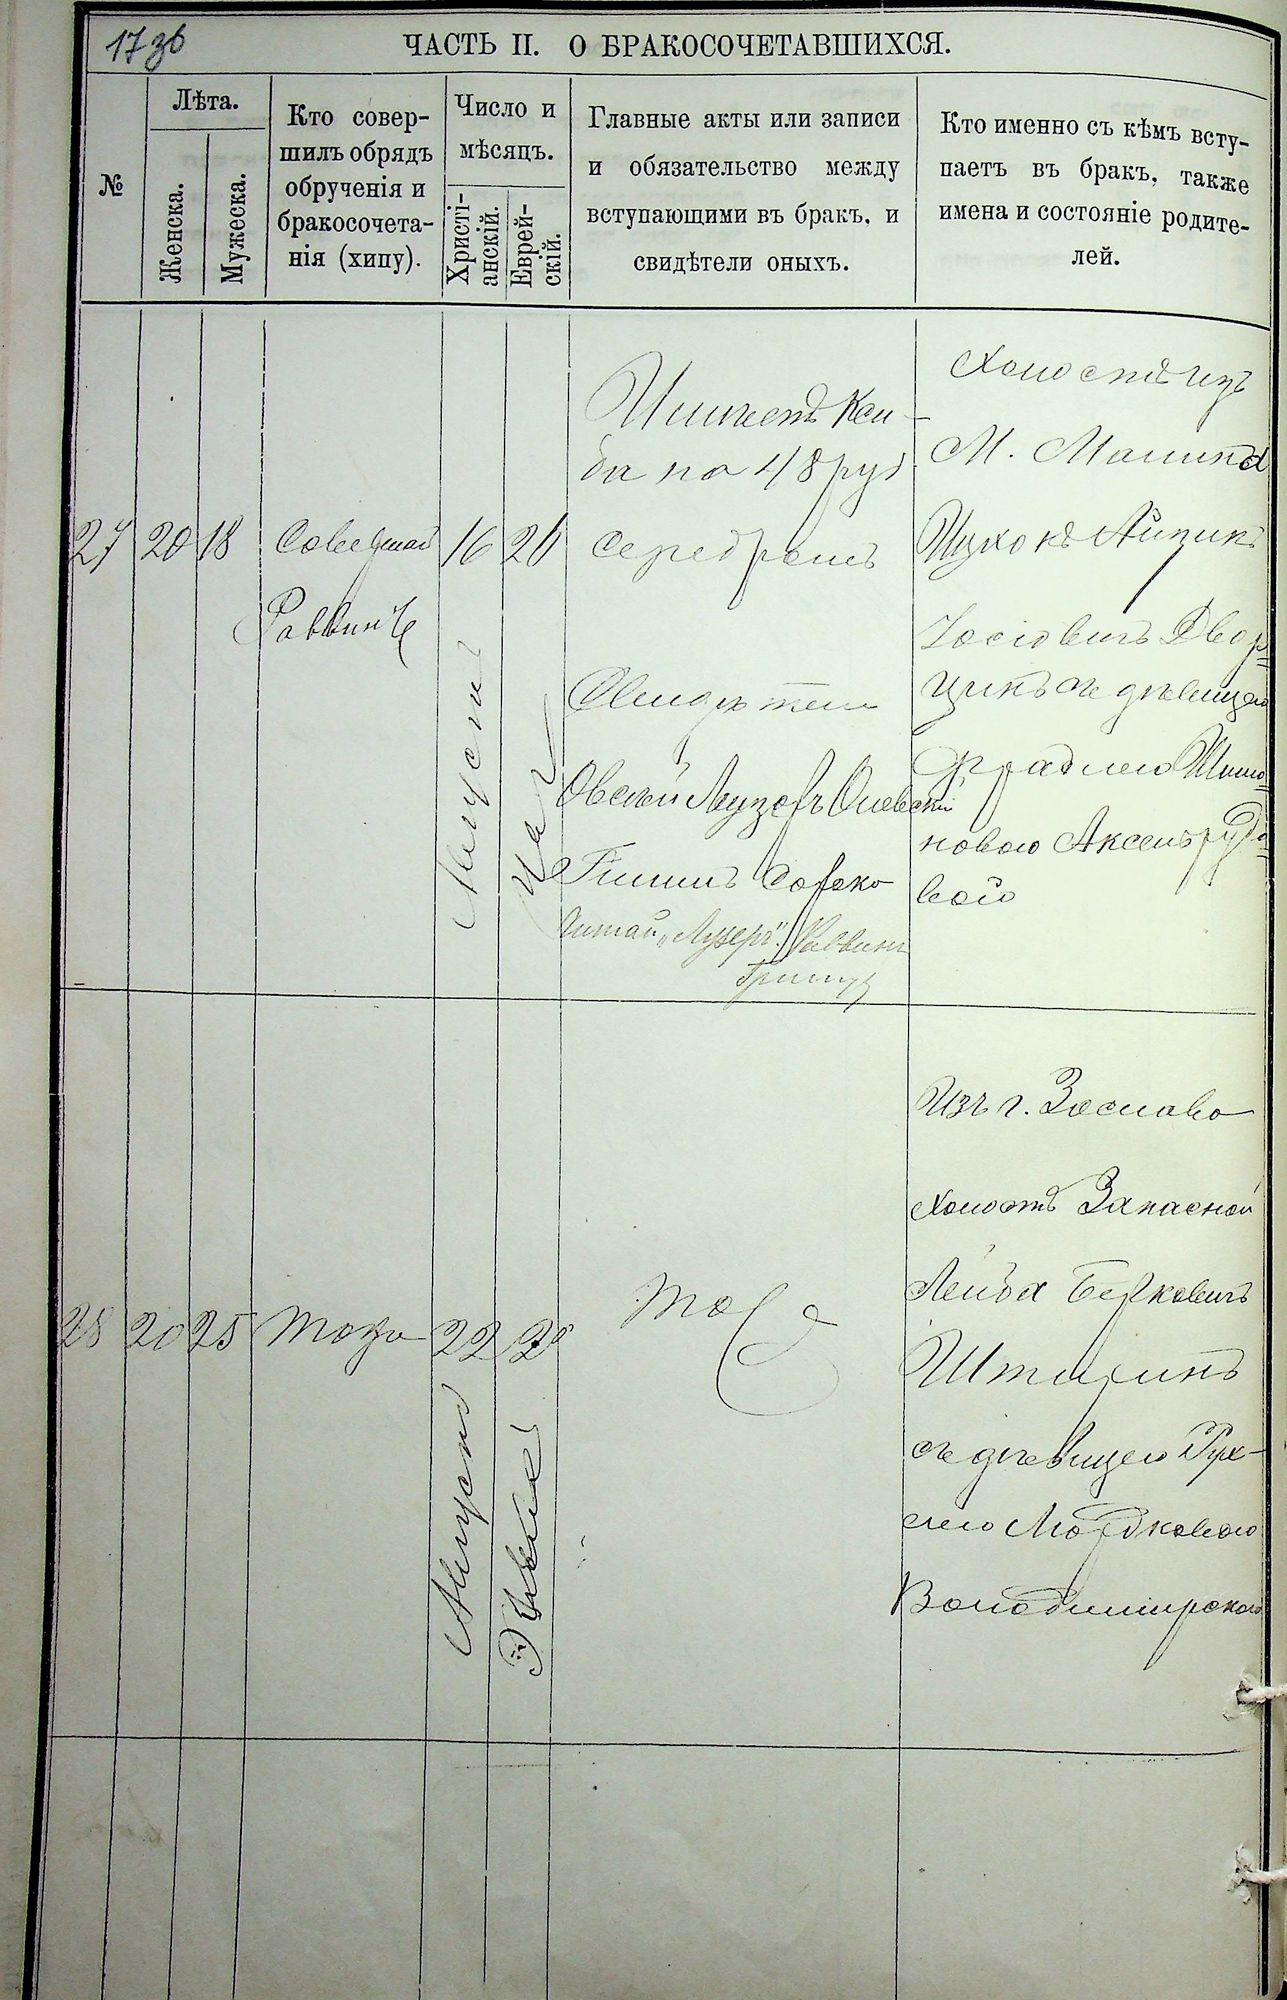 17 зв
ЧАСТЬ II. О БРАКОСОЧЕТАВШИХСЯ.
№
Лѣта.
Женска.
Мужеска.
Кто совер-
шилъ обрядъ
обрученія и
бракосочета-
нія (хипу).
Число и
мѣсяцъ.
Христі-
анскій.
Еврей-
скій.
Главные акты или записи
и обязательство между
вступающими въ бракъ, и
свидѣтели оныхъ.
Кто именно съ кѣмъ всту-
паетъ въ бракъ, также
имена и состояніе родите-
лей.
27
20
18
Совершал
Раввинъ
16
Августа
Кси-
ба по 48 руб
серебромъ
Свидѣтели
Овсей Лузеръ
Читай „Лузеръ". Раввинъ
Холостъ изъ
М.
Ицхокъ Айзикъ
Іосіовичъ Двор-
цинъ съ дѣвицею
Фрадлею Шимо-
новою Аксельрудо-
вой
28
20
25
тотъ
22
Августа
то
Изъ г. Заслава
холостъ Запасной
Лейба Берковичъ
съ дѣвицею Рух-
лею Мордковою